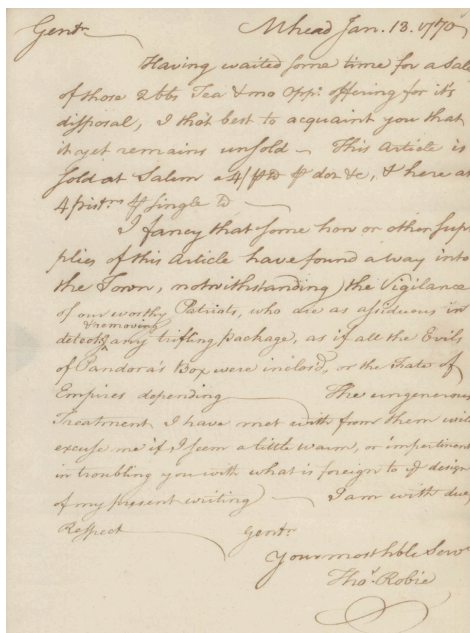 Gentn Mhead Jan. 13. 1770
Having waited some time for a Sale
of those 2 bbs Tea & no opp: offering for it's
disposal, I tho't best to acquaint you that
it yet remains unsold – This Article is
sold at Salem a 4/ ⅌ lb ⅌ doz &c, & here at
4 pistrns ⅌ single lb —
I fancy that some how or other sup
plies of this Article have found a way into
the Town, notwithstanding the Vigilance
of our worthy Patriots, who are as assiduous in
& removing
detectg any trifling package, as if all the Evils
of Pandora's Box were inclosd, or the Fate of
Empires depending — The ungenerous
Treatment I have met with from them will
excuse me if I seem a little warm, or impertinent
in troubling you with what is foreign to ye design
of my present writing — I am with due
Respect Gentn
Your most hble Serv
Thos. Robie